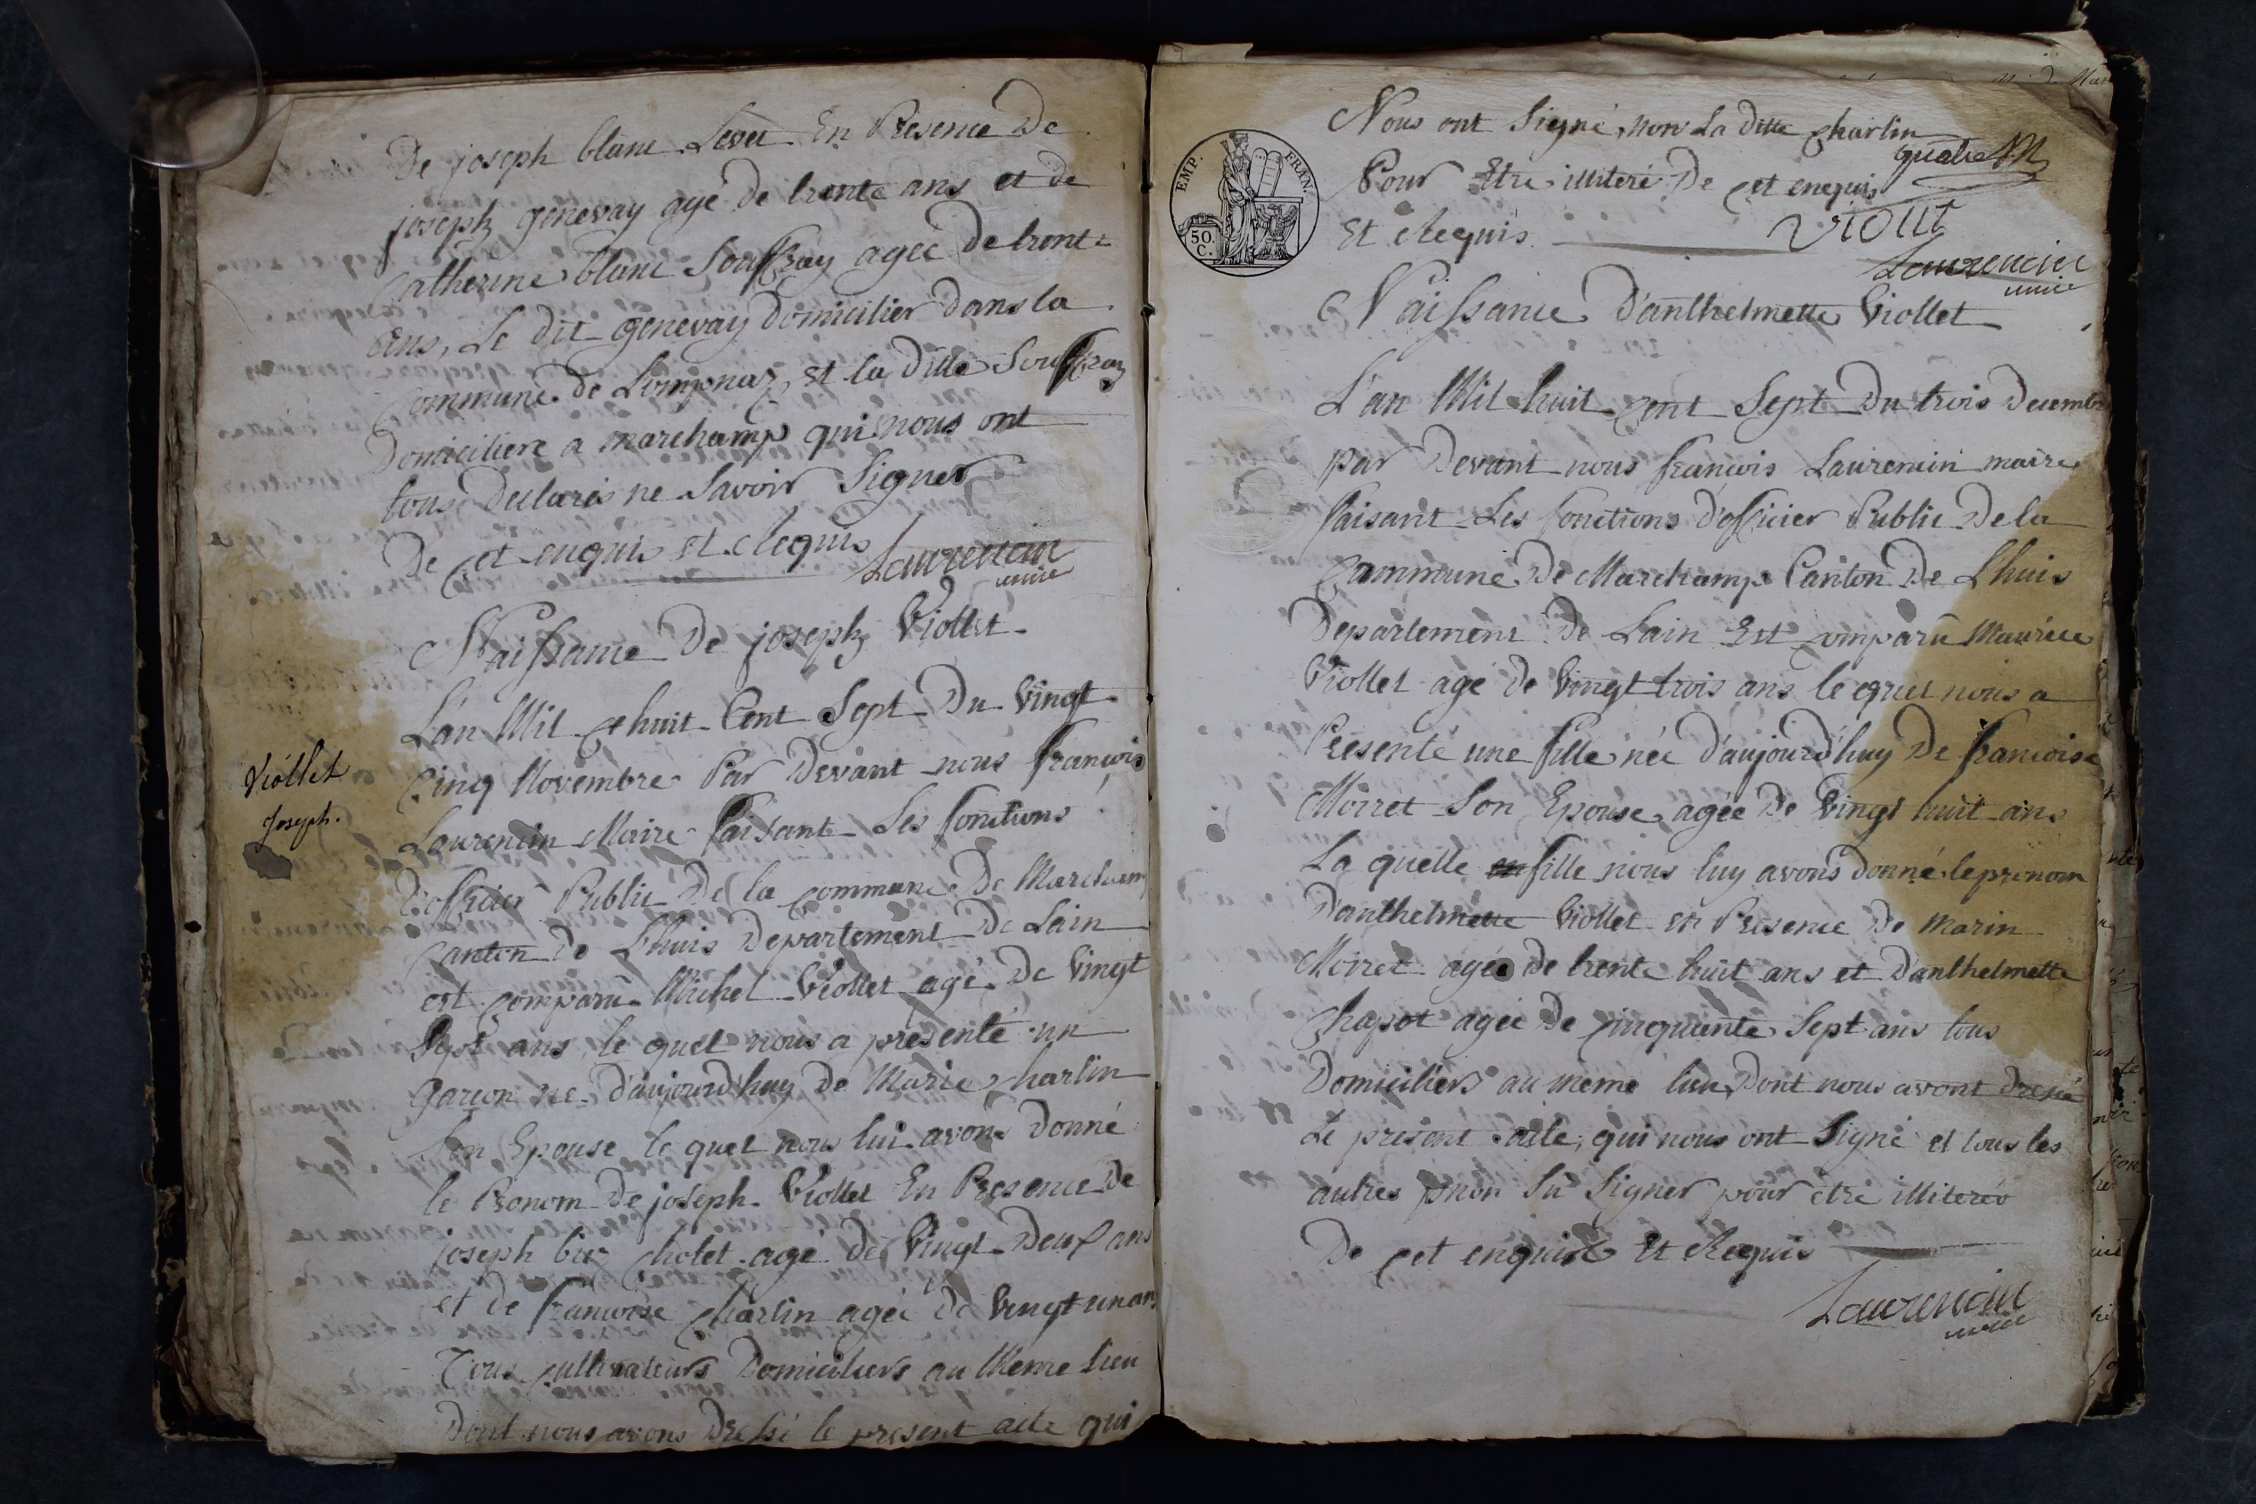 De joseph blanc Levet En Présence De
joseph genevay agé de trente ans et de
Catherine blanc Souffray agée de trente
Ans, Le dit genevay Domicilier dans la
Commune de Lompnaz, et la ditte Souffray
Domiciliere a marchamp qui nous ont
tous declarés ne Savoir Signer
De cet enquis et Requis
Laurencin
maire
Naissance De joseph Viollet
L'an Mil huit Cent Sept Du Vingt
Cinq Novembre Par Devant nous françois
Laurencin Maire faisant Les fonctions
D'officier Public De la Commune De Marchamp
Canton De L'huis Département De Lain
est comparu Michel Viollet agé De Vingt
Sept ans le quel nous a présenté un
garcon né d'aujourd'huy de Marie Charlin
Son Epouse le quel nous lui avons Donné
le Prenom De joseph Viollet En Presence De
joseph Cholet agé de Vingt Deux ans
et de francoise Charlin agée de Vingt un ans
Tous cultivateurs Domiciliers au Meme Lieu
Dont nous avons Dressé le present acte qui
Viollet
Joseph.
EMP. FRAN.
50.
C.
Nous ont Signé, non La ditte Charlin
quatre
Pour Etre illiteré De cet enquis
Et Requis
Viollet
Laurencin
maire
Naissance D'anthelmette Viollet
L'an Mil huit Cent Sept Du trois Decembre
par Devant nous françois Laurencin maire
faisant Les fonctions D'officier Public De la
Commune De Marchamp Canton De L'huis
Departement De Lain Est comparû Maurice
Viollet agé de Vingt trois ans le quel nous a
Presenté une fille née d'aujourd'huy De francoise
Moiret Son Epouse agée De Vingt huit ans
La quelle fille nous luy avons donné le prenom
D'anthelmette Viollet en Presence De Marin
Moiret agée de trente huit ans et D'anthelmette
Chapot agée De Cinquante Sept ans tous
Domiciliers au meme lieu, Dont nous avont Dressé
Le present acte, qui nous ont Signé et tous les
autres non Sû Signer pour etre illiterés
De cet enquis Et Requis
Laurencin
maire